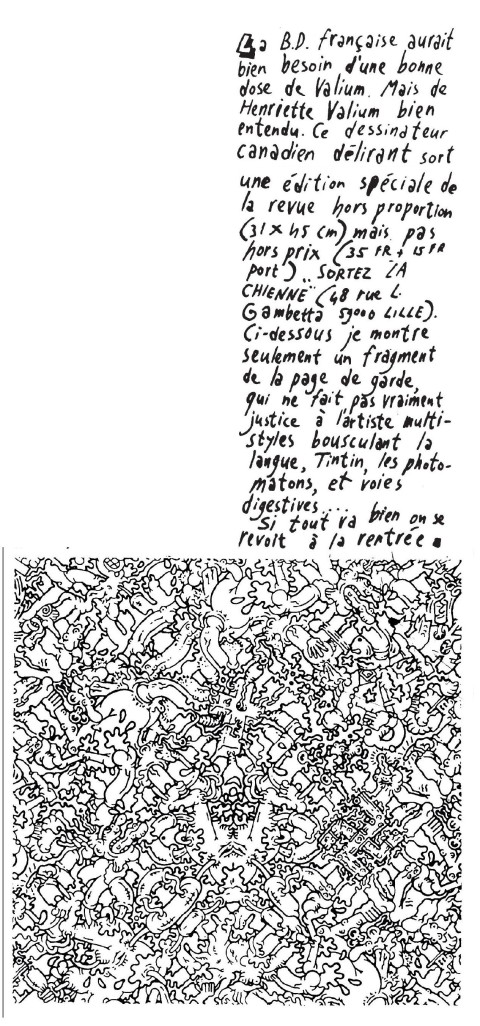 La B.D. française aurait
bien besoin d'une bonne
dose de Valium. Mais de
Henriette Valium bien
entendu. Ce dessinateur
canadien délirant sort
une édition spéciale de
la revue hors proportion
(31 x 45 cm) mais pas
hors prix (35 FR + 15 FR
port). "SORTEZ LA
CHIENNE" (48 rue L.
Gambetta 59000 LILLE).
Ci-dessous je montre
seulement un fragment
de la page de garde,
qui ne fait pas vraiment
justice à l'artiste multi-
styles bousculant la
langue, Tintin, les photo-
matons, et voies
digestives....
Si tout va bien on se
revoit à la rentrée